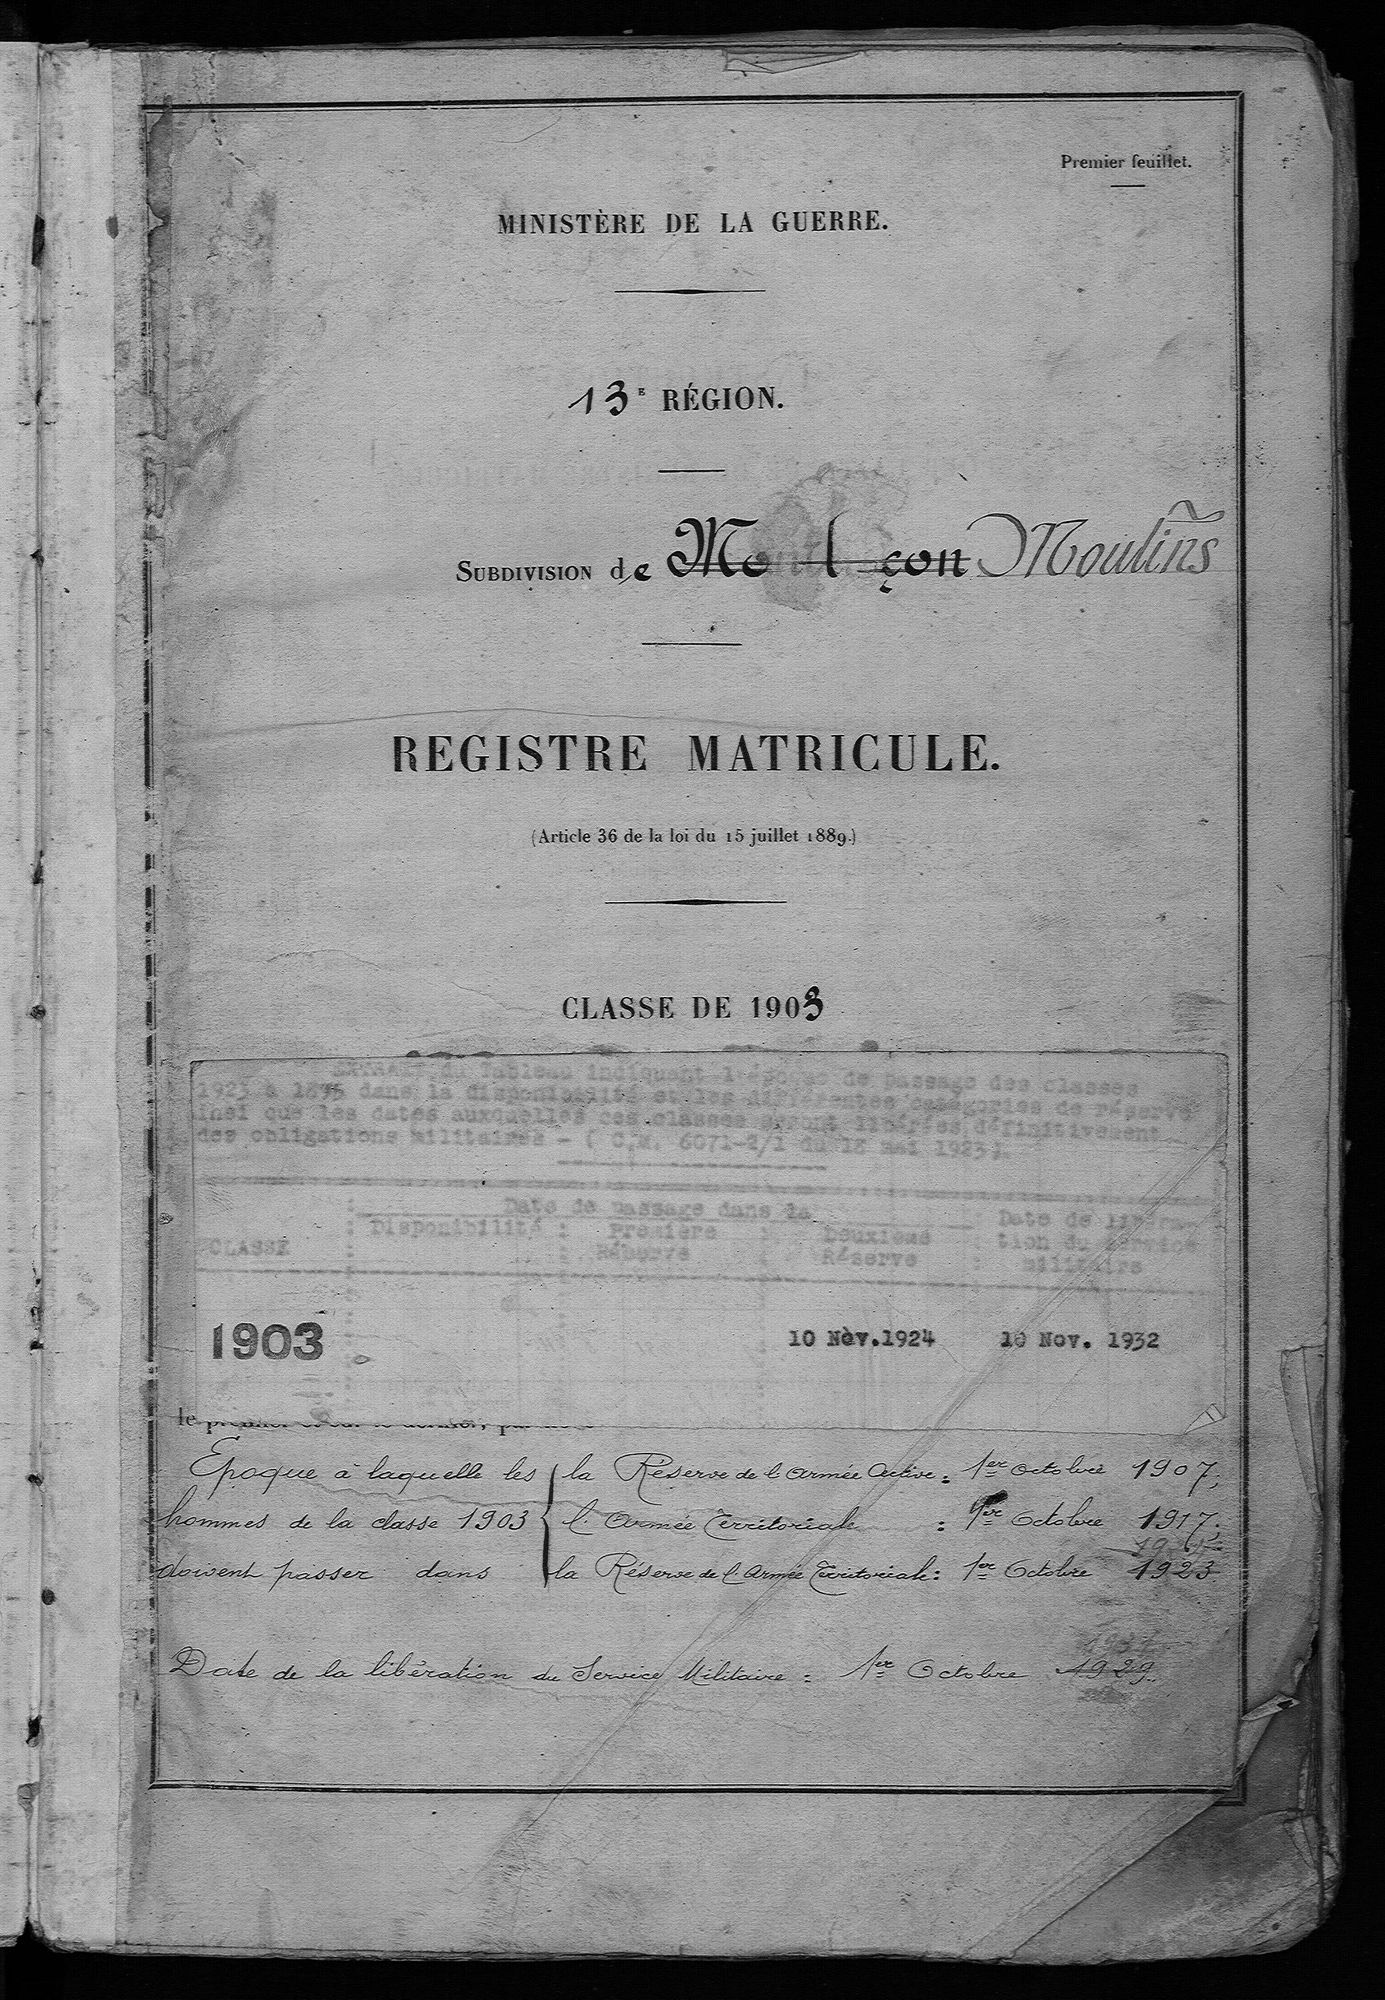 Premier feuillet.
MINISTÈRE DE LA GUERRE.
13E RÉGION.
SUBDIVISION de Montluçon Moulins
REGISTRE MATRICULE.
(Article 36 de la loi du 15 juillet 1889.)
CLASSE DE 1903
EXTRAIT du Tableau indiquant l'époque de passage des classes
1923 à 1895 dans la disponibilité et les différentes catégories de réserve
ainsi que les dates auxquelles ces classes seront libérées définitivement
des obligations militaires - ( C.M. 6071-2/1 du 18 mai 1923).
Date de passage dans la
CLASSE : Disponibilité : Première Réserve : Deuxième Réserve : Date de libération du service militaire
1903 10 Nov.1924 10 Nov. 1932
le premier et sur le dernier,
Epoque à laquelle les la Réserve de l'Armée Active : 1er Octobre 1907,
hommes de la classe 1903 l'Armée Territoriale : 1er Octobre 1917,
doivent passer dans la Réserve de l'Armée Territoriale : 1er Octobre 1923
Date de la libération du Service Militaire : 1er Octobre 1929.